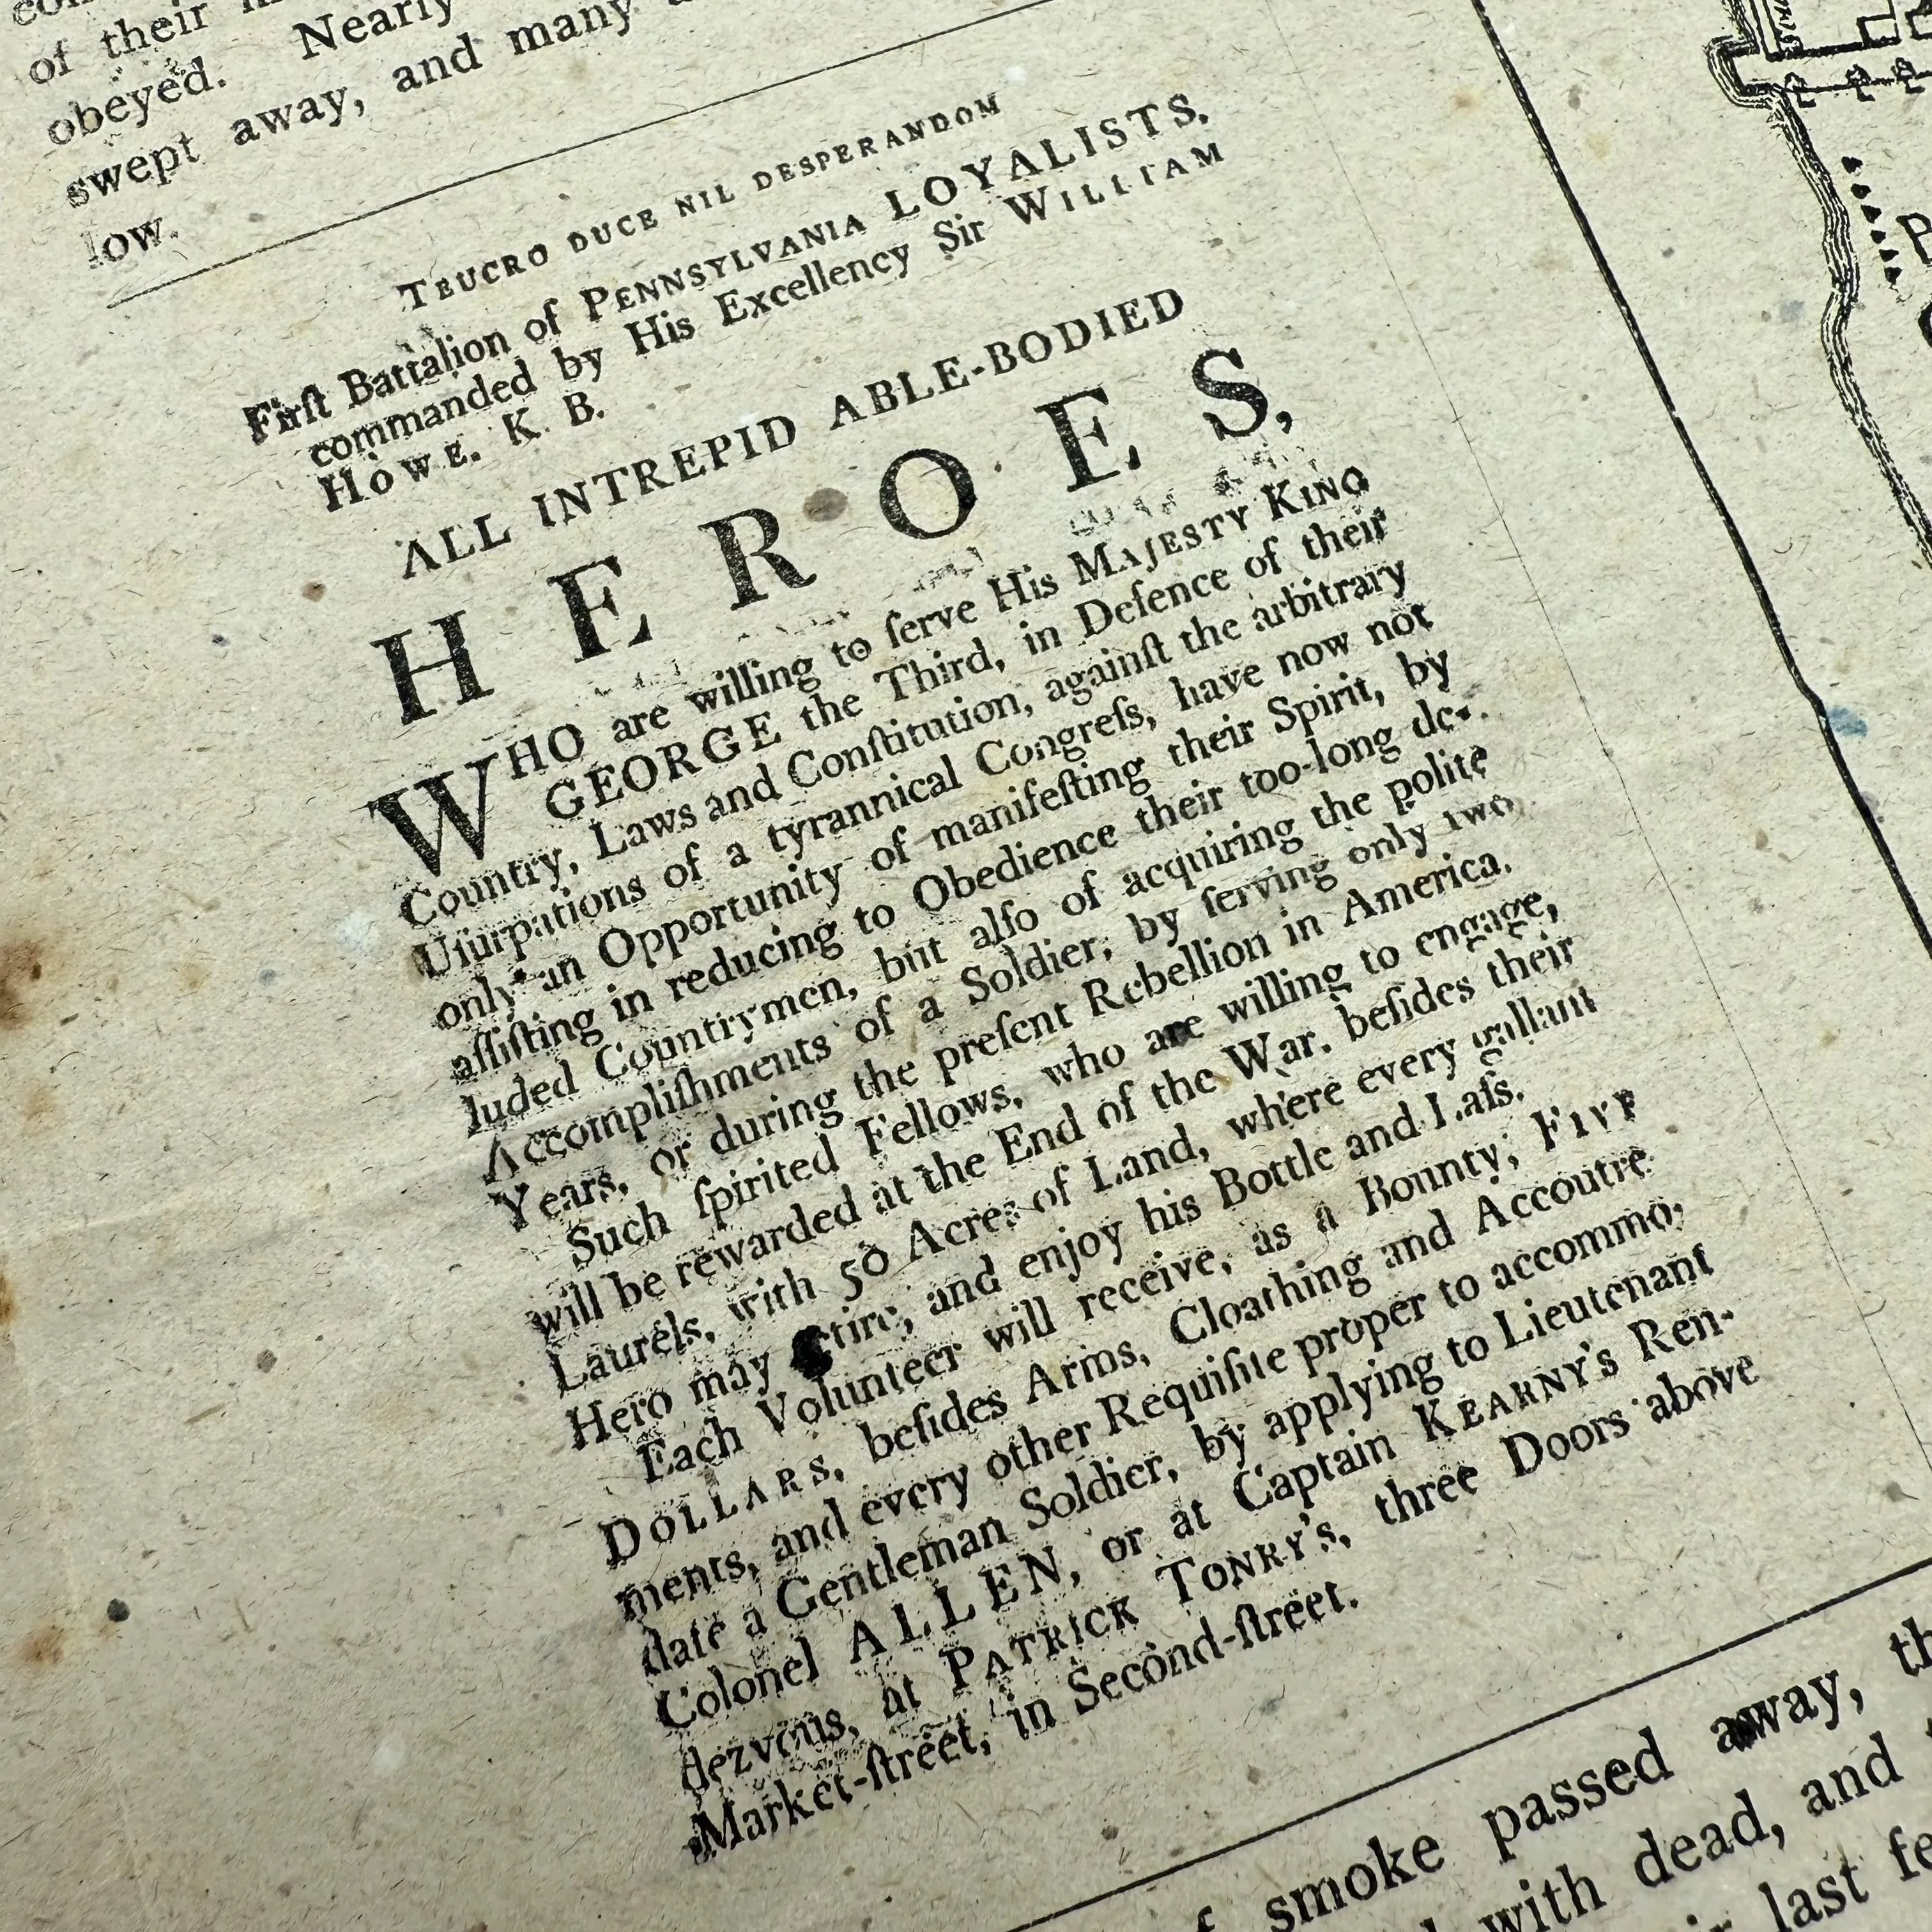 of their
obeyed. Nearly
swept away, and many
low.
TEUCRO DUCE NIL DESPERANDOM
Firſt Battalion of PENNSYLVANIA LOYALISTS,
commanded by His Excellency Sir WILLIAM
HOWE. K. B.
ALL INTREPID ABLE-BODIED
HEROES,
WHO are willing to ſerve His MAJESTY KING
GEORGE the Third, in Defence of their
Country, Laws and Conſtitution, againſt the arbitrary
Uſurpations of a tyrannical Congreſs, have now not
only an Opportunity of manifeſting their Spirit, by
aſſiſting in reducing to Obedience their too-long de-
luded Countrymen, but alſo of acquiring the polite
Accompliſhments of a Soldier, by ſerving only two
Years, or during the preſent Rebellion in America.
Such ſpirited Fellows, who are willing to engage,
will be rewarded at the End of the War, beſides their
Laurels, with 50 Acres of Land, where every gallant
Hero may retire, and enjoy his Bottle and Laſs.
Each Volunteer will receive, as a Bounty; FIVE
DOLLARS, beſides Arms, Cloathing and Accoutre-
ments, and every other Requiſite proper to accommo-
date a Gentleman Soldier, by applying to Lieutenant
Colonel ALLEN, or at Captain KEARNY'S Ren-
dezvous, at PATRICK TONRY'S, three Doors above
Market-ſtreet, in Second-ſtreet.
smoke passed away,
with dead, and
last